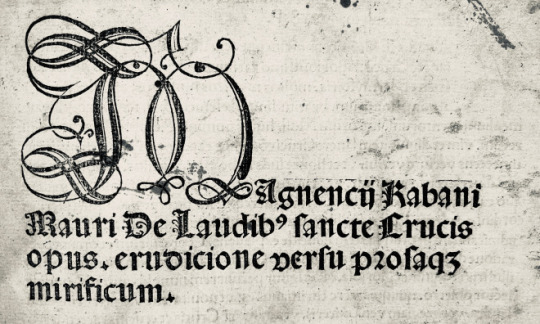 Magnencij Rabani
Mauri De Laudibꝰ sancte Crucis
opus. erudicione versu prosaqꝫ
mirificum.